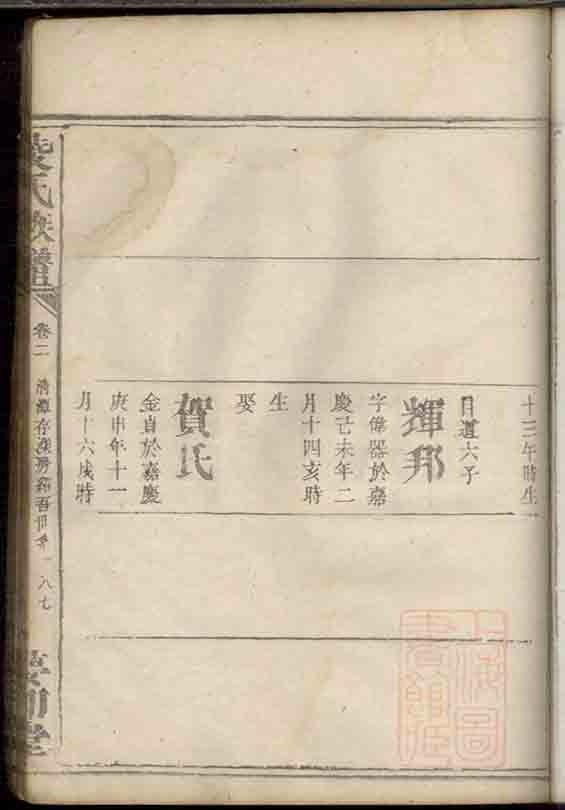 十三午時生
日道六子
輝邦
字偉器於嘉
慶己未年二
月十四亥時
生
娶
賀氏
金自於嘉慶
庚申年十一
月十六戌時
氏族譜
卷二
一八七
上海圖
書館藏